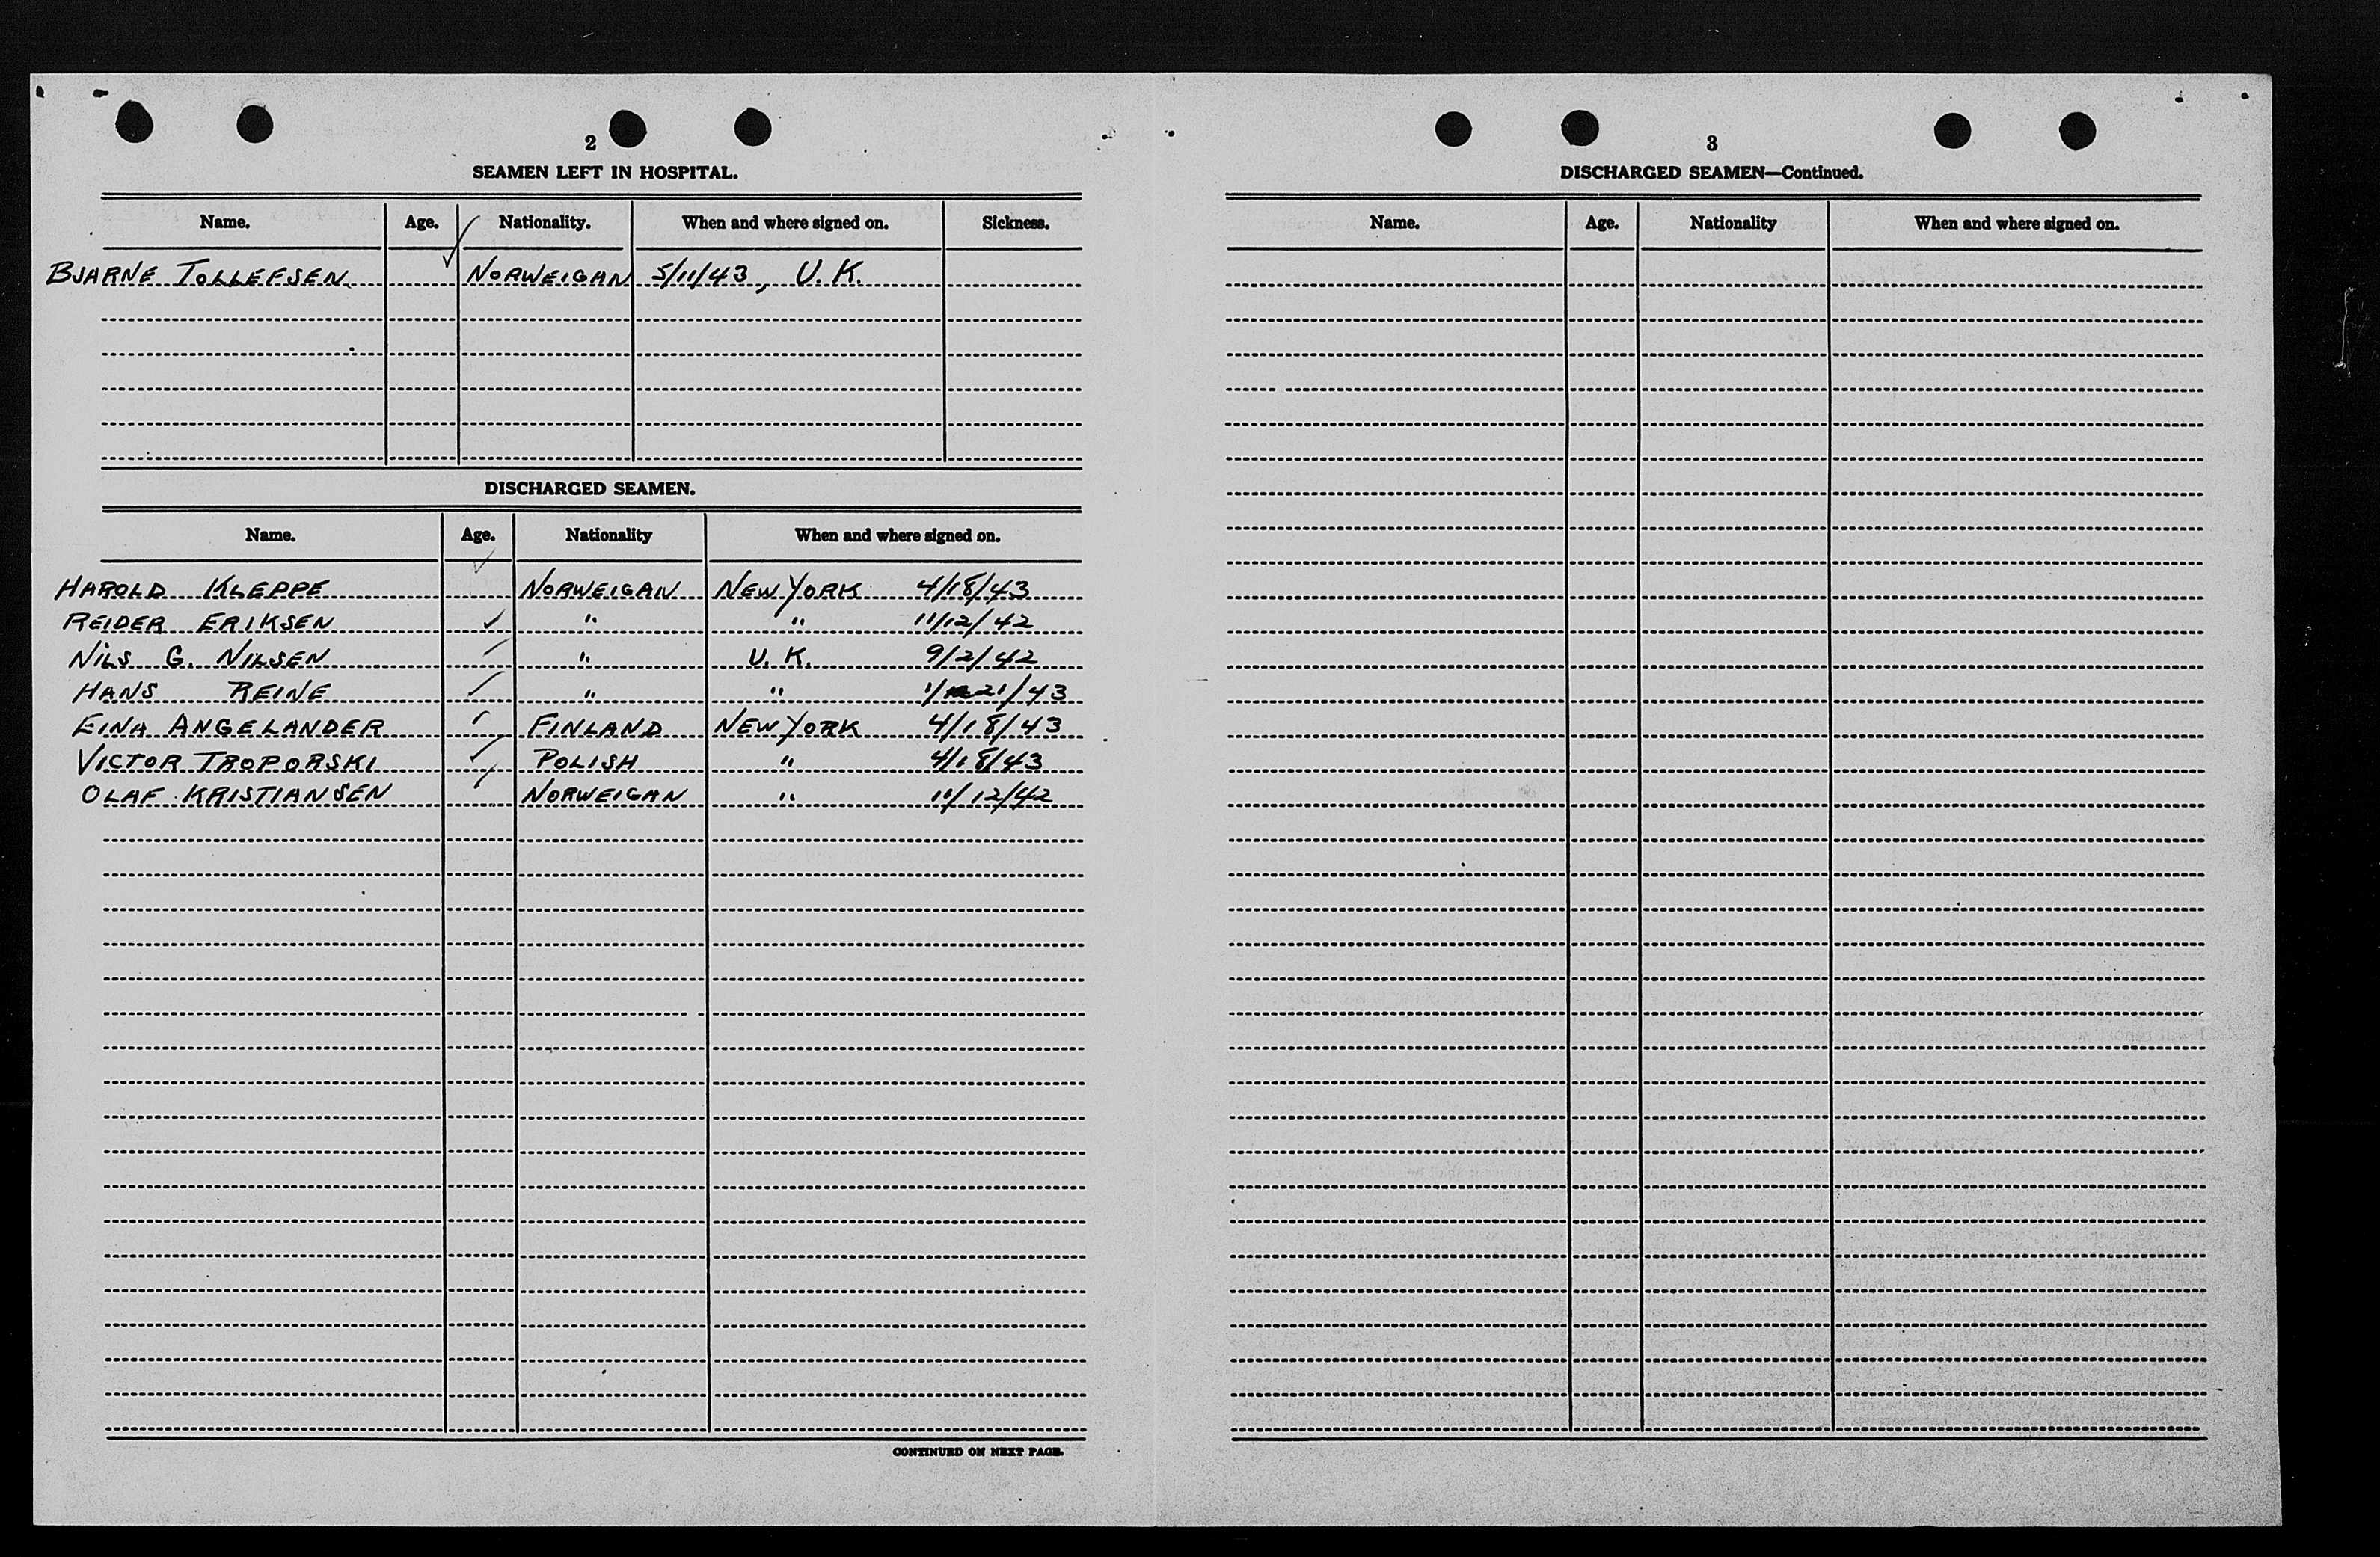 2
SEAMEN LEFT IN HOSPITAL.
Name. Age. Nationality. When and where signed on. Sickness.
BJARNE TOLLEFSEN ✓ NORWEIGAN 5/11/43, U.K.
DISCHARGED SEAMEN.
Name. Age. Nationality When and where signed on.
HAROLD KLEPPE ✓ NORWEIGAN NEW YORK 4/18/43
REIDER ERIKSEN ✓ " " 11/12/42
NILS G. NILSEN ✓ " U.K. 9/2/42
HANS REINE ✓ " " 1/21/43
EINA ANGELANDER ✓ FINLAND NEW YORK 4/18/43
VICTOR TROPORSKI ✓ POLISH " 4/18/43
OLAF KRISTIANSEN ✓ NORWEIGAN " 11/12/42
CONTINUED ON NEXT PAGE.
3
DISCHARGED SEAMEN—Continued.
Name. Age. Nationality When and where signed on.